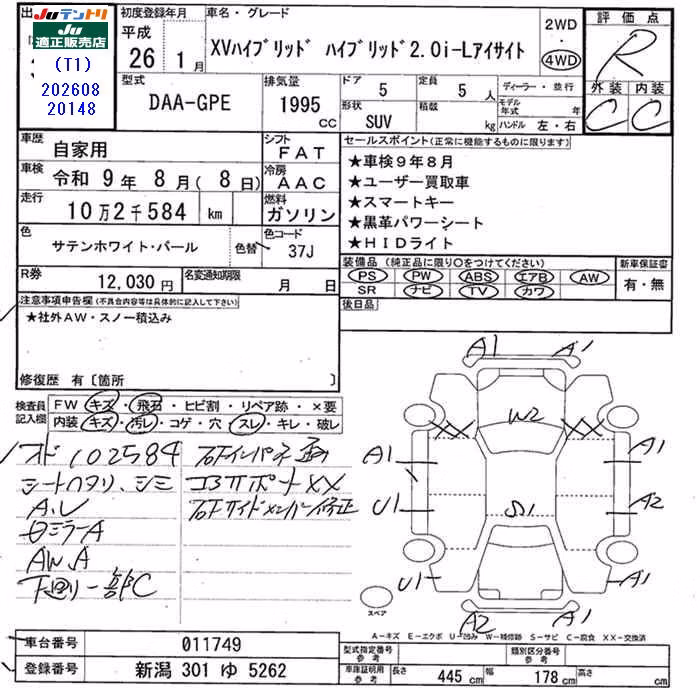 出
JU テントリ
JU
適正販売店
(T1)
202608
20148
初度登録年月
平成
26 1月
車名・グレード
XVハイブリッド ハイブリッド2.0i-Lアイサイト
2WD
・
4WD
評価点
R
外装 内装
C C
型式
DAA-GPE
排気量
1995
cc
ドア
5
形状
SUV
定員
5 人
積載
kg
ディーラー・並行
モデル年式 年
ハンドル 左・右
車歴
自家用
シフト
FAT
車検
令和 9年 8月( 8日)
冷房
AAC
走行
10万2千584 km
燃料
ガソリン
色
サテンホワイト・パール
色替
色コード
37J
R券
12,030円
名変通知期限
月 日
セールスポイント(正常に機能するものに限ります)
★車検9年8月
★ユーザー買取車
★スマートキー
★黒革パワーシート
★HIDライト
装備品(純正品に限り○をつけてください)
PS PW ABS エアB AW
SR ナビ TV カワ
新車保証書
有・無
後日品
注意事項申告欄(不具合内容等は具体的に記入して下さい)
★社外AW・スノー積込み
修復歴 有〔箇所 〕
検査員記入欄
FW キズ・飛石・ヒビ割・リペア跡・×要
内装 キズ・汚レ・コゲ・穴・スレ・キレ・破レ
オド 102584
シートヘタリ、シミ
A、U
ロミラーA
AW A
下廻り一部C
右Fインパネ
コアサポートXX
右Fサイドメンバー修正
A1 A1
W2
A1 A1
U1 S1 A2
U1 A1
A2 A1
スペア
A-キズ E-エクボ U-凹み W-補修跡 S-サビ C-腐食 XX-交換済
車台番号 011749
登録番号 新潟 301 ゆ 5262
型式指定番号
参考
類別区分番号
参考
車庫証明用
参考
長さ 445 cm 幅 178 cm 高さ cm